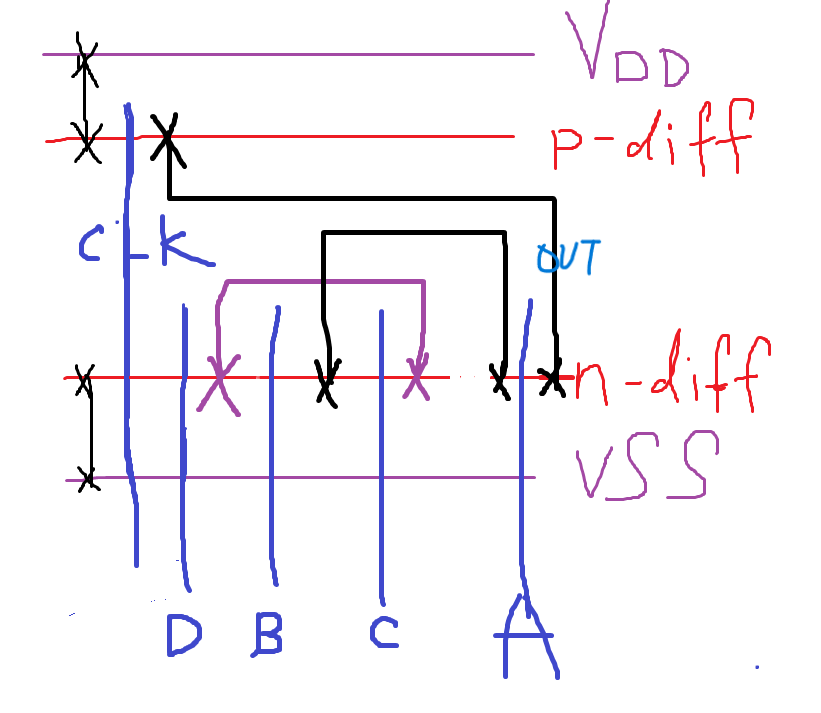 VDD
p-diff
CLK
OUT
n-diff
VSS
D B C A